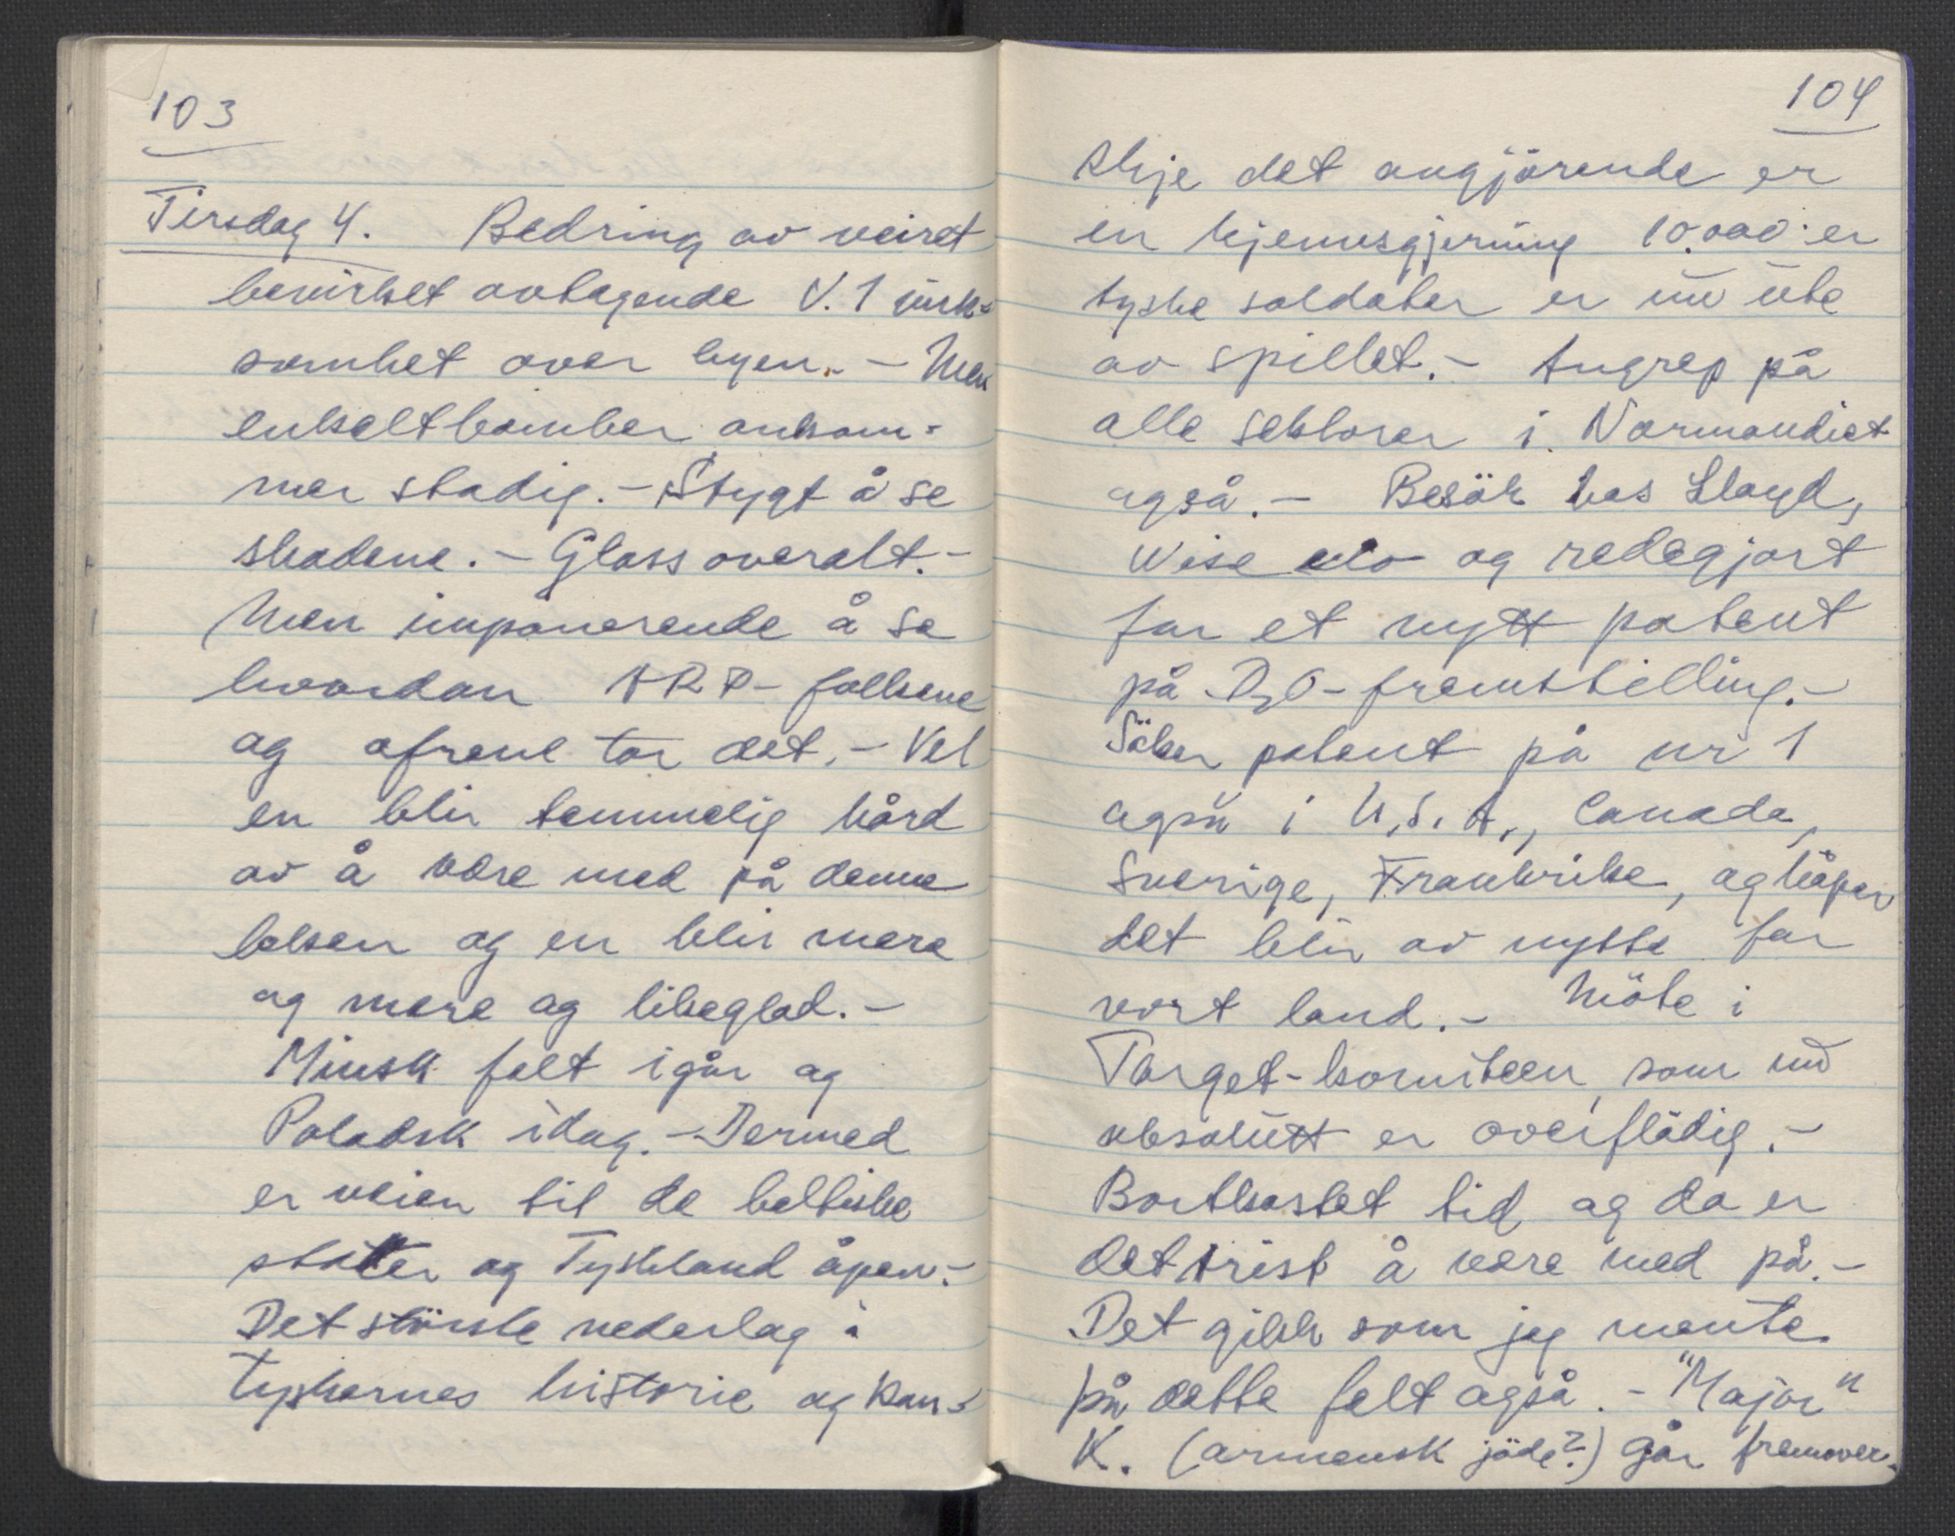 103
Tirsdag 4. Bedring av veiret
bevirket avtagende V.1 virk-
somhet over byen. - Men
enkeltbomber ankom-
mer stadig. - Stygt å se
skadene. - Glass overalt. -
Men imponerende å se
hvordan ARP-folkene
og ofrene tar det. - Vel
en blir temmelig hård
av å være med på denne
leken og en blir mere
og mere og likeglad. -
Minsk falt igår og
Polodsk idag. - Dermed
er veien til de baltiske
stater og Tyskland åpen. -
Det störste nederlag i
tyskernes historie og kan-
104
skje det avgjörende er
en kjennsgjerning 10.000 er
tyske soldater er nu ute
av spillet. - Angrep på
alle sektorer i Normandiet
også. - Besök hos Lloyd,
Wise & Co og redegjort
for et nytt patent
på D2O-fremstilling. -
Söker patent på nr 1
også i U.S.A., Canada,
Sverige, Frankrike, og håper
det blir av nytte for
vort land. - Möte i
Target-komiteen som nu
absolutt er overflödig. -
Bortkastet tid og da er
det trist å være med på. -
Det gikk som jeg mente
på dette felt også. - "Major"
K. (armensk jöde?) går fremover.